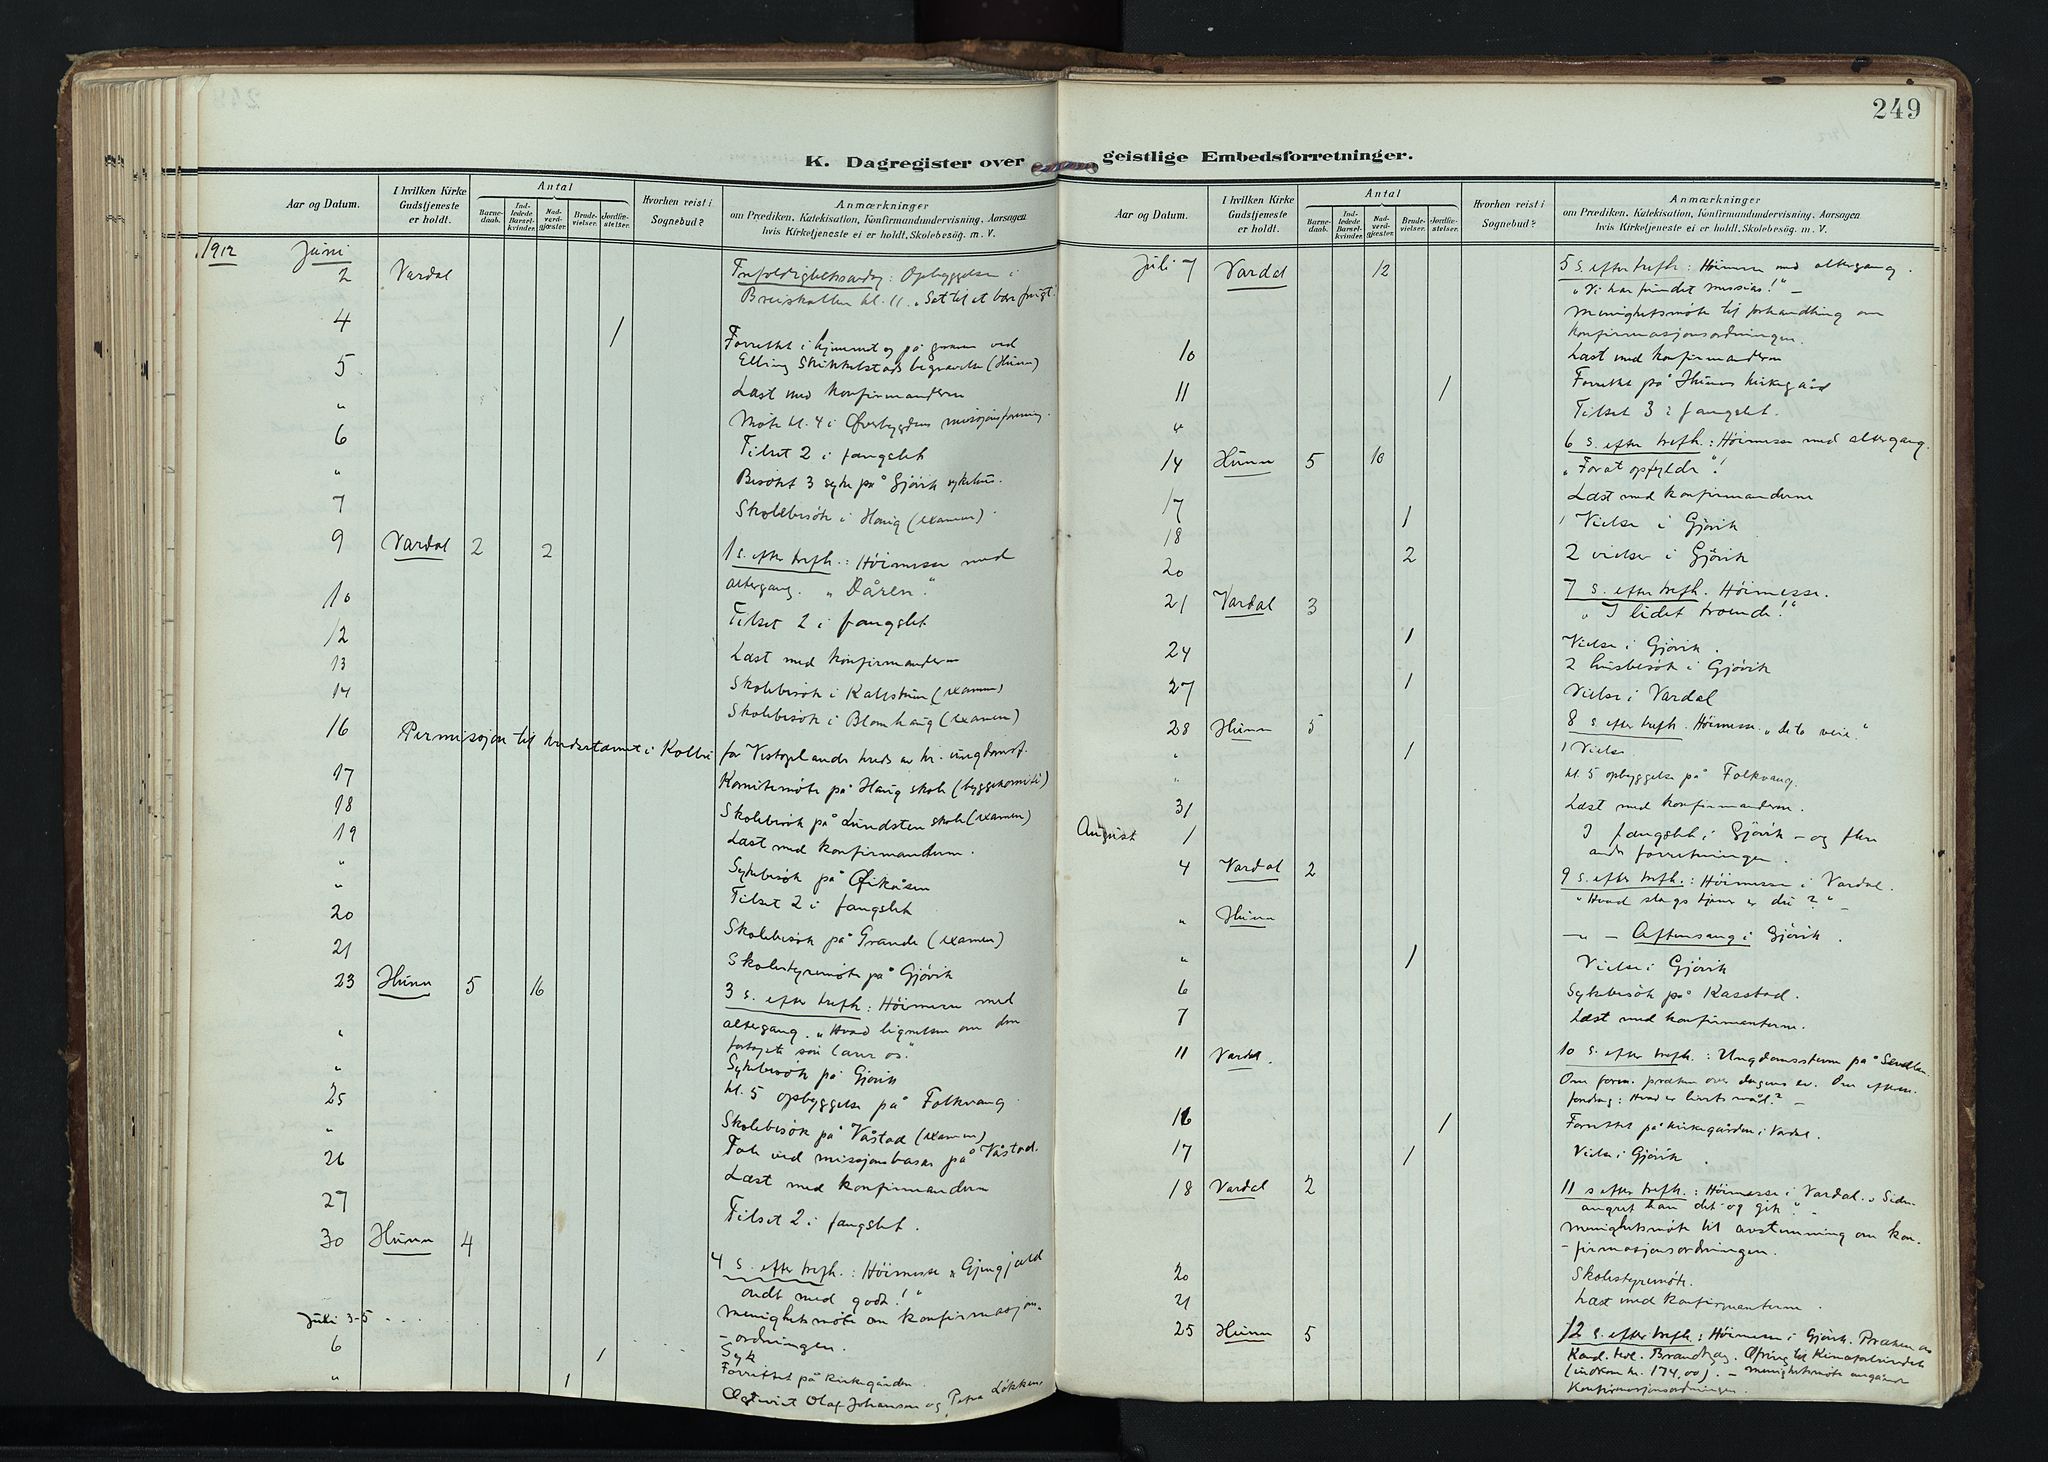 249
K. Dagregister over geistlige Embedsforretninger.
Aar og Datum.
I hvilken Kirke Gudstjeneste er holdt.
Antal
Barnedaab.
Indledede Barselkvinder.
Nadverdgjæster.
Brudevielser.
Jordfæstelser.
Hvorhen reist i Sognebud?
Anmærkninger
om Prædiken, Katekisation, Konfirmandundervisning, Aarsagen
hvis Kirketjeneste ei er holdt, Skolebesøg m. V.
1912 Juni
2 Vardal Trefoldighetssøndag: Opbyggelse i
Breiskallen kl. 11.
4 1 Forrettet i hjemmet og på graven ved
Elling Skikkelstads begravelse (Hunn)
5 Læst med konfirmanderne
" Møte kl. 4 i Øverbygdens missjonsforening.
6 Tilset 2 i fangslet
" Besøkt 3 syke på Gjøvik sykehus.
7 Skolebesøk i Haug (examen).
9 Vardal 2 2 1 s. efter trefh.: Høimesse med
altergang. "Dåren."
10 Tilset 2 i fangslet
12 Læst med konfirmanderne
13 Skolebesøk i Kallstun (examen)
14 Skolebesøk i Blomhaug (examen)
16 Permissjon til kredsstævnet i Kolbu for Vestoplandenes kreds av kr. ungdomsf.
17 Komitemøte på Haug skole (byggekomite)
18 Skolebesøk på Lundsten skole (examen)
19 Læst med konfirmanderne.
" Sykebesøk på Øikåsen
" Tilset 2 i fangslet
20 Skolebesøk på Grande (examen)
21 Skolestyremøte på Gjøvik
23 Hunn 5 16 3 s. efter trefh.: Høimesse med
altergang. "Hvad lignelsen om den
fortapte søn lærer os."
" Sykebesøk på Gjøvik
" kl. 5 opbyggelse på Folkvang.
25 Skolebesøk på Våstad (examen)
" Tale ved missjonsbasar på Våstad.
26 Læst med konfirmanderne
27 Tilset 2 i fangslet.
30 Hunn 4 4 s. efter trefh.: Høimesse "Gjengjæld
ondt med godt!"
menighetsmøte om konfirmasjons-
ordningen.
Juli 3-5 .... Syk
6 1 Forrettet på kirkegården.
" 1 Olaf Johansen og Petra Løkken.
Aar og Datum.
I hvilken Kirke Gudstjeneste er holdt.
Antal
Barnedaab.
Indledede Barselkvinder.
Nadverdgjæster.
Brudevielser.
Jordfæstelser.
Hvorhen reist i Sognebud?
Anmærkninger
om Prædiken, Katekisation, Konfirmandundervisning, Aarsagen
hvis Kirketjeneste ei er holdt, Skolebesøg m. V.
Juli 7 Vardal 12 5 s. efter trefh.: Høimesse med altergang.
"Vi har fundet messias!" -
Menighetsmøte til forhandling om
konfirmasjonsordningen.
10 Læst med konfirmanderne
11 1 Forrettet på Hunns kirkegård
" Tilset 3 i fangslet.
14 Hunn 5 10 6 s. efter trefh.: Høimesse med altergang.
"For at opfylde"!
17 Læst med konfirmanderne
18 1 1 Vielse i Gjøvik
20 2 2 vielser i Gjøvik
21 Vardal 3 7 s. efter trefh. Høimesse.
"I lidet troende!"
24 1 Vielse i Gjøvik.
2 husbesøk i Gjøvik
27 1 Vielse i Vardal
28 Hunn 5 8 s. efter trefh. Høimesse. "De to veie."
" 1 1 Vielse.
" kl. 5 opbyggelse på Folkvang.
31 Læst med konfirmanderne.
August 1 I fangslet i Gjøvik - og flere
andre forretninger.
4 Vardal 2 9 s. efter trefh.: Høimesse i Vardal.
"Hvad slags tjener er du?" -
" Hunn - " - Aftensang i Gjøvik.
" 1 Vielse i Gjøvik
6 Sykebesøk på Kasstad.
7 Læst med konfirmanterne.
11 Vardal. 10 s. efter trefh.: Ungdomsstevne på
Om form. præken over dagens ev. Om efterm.
foredrag: Hvad er livets mål? -
16 1 Forrettet på kirkegården i Vardal.
17 1 Vielse i Gjøvik
18 Vardal 2 11 s efter trefh.: Høimesse i Vardal. "Siden
angret han det og gik." -
menighetsmøte til avstemning om kon-
firmasjonsordningen.
20 Skolestyremøte.
21 Læst med konfirmanterne.
25 Hunn 5 12 s. efter trefh.: Høimesse i Gjøvik. Præken av
Kand. teol. Brandtzæg. Ofring til Kinaforbundet
(indkom kr. 174,00). - menighetsmøte angående
Konfirmasjonsordningen.